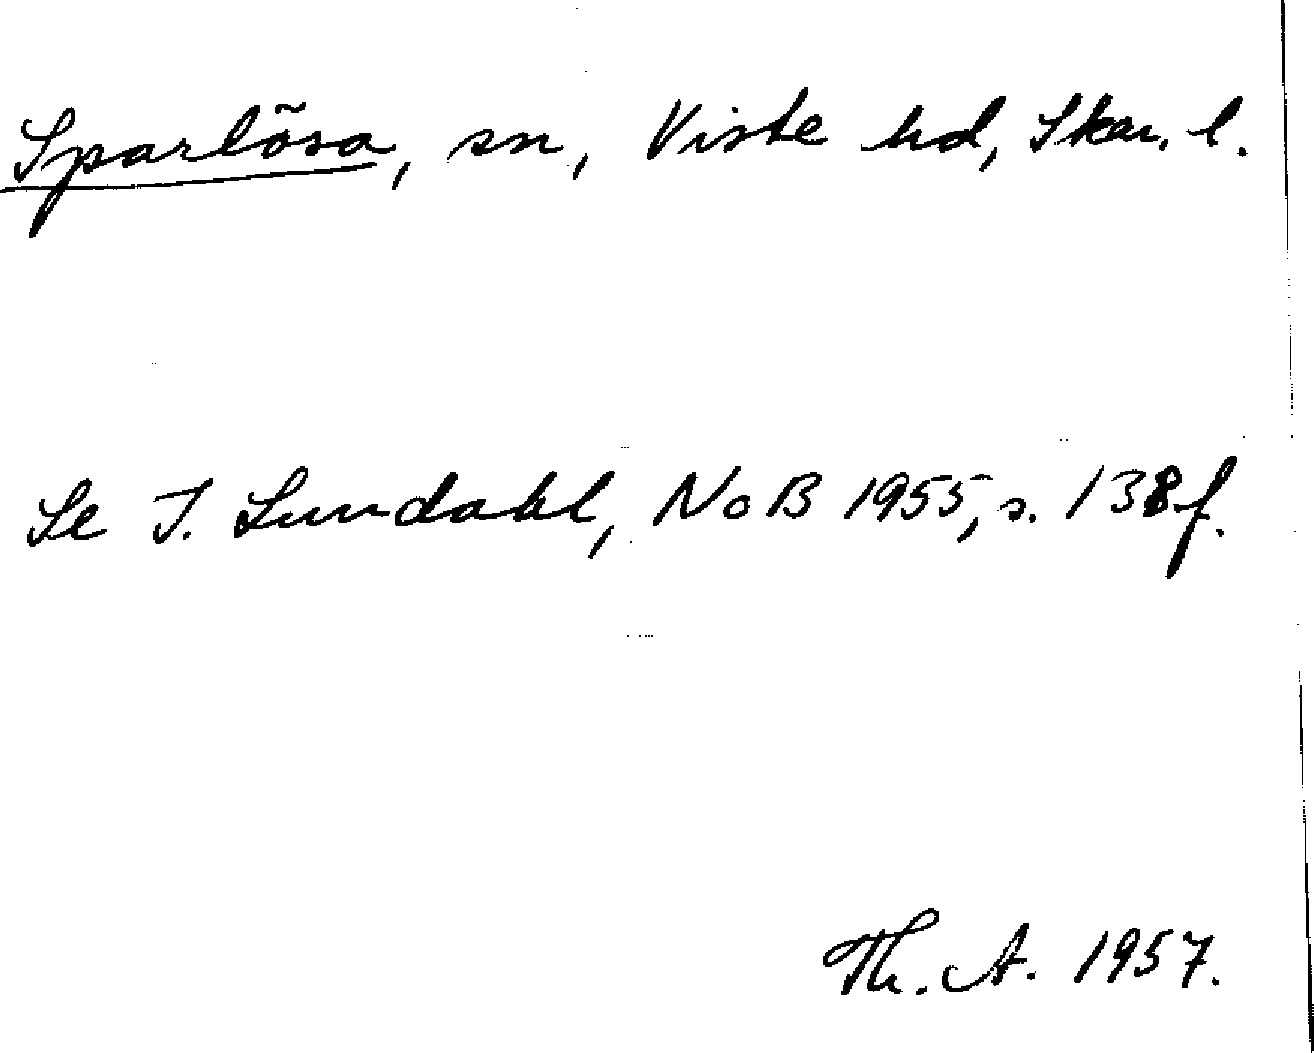 Sparlösa, sn, Viste hd, Skar. l.
Se I. Lundahl, NoB 1955, s. 138 f.
Th. A. 1957.